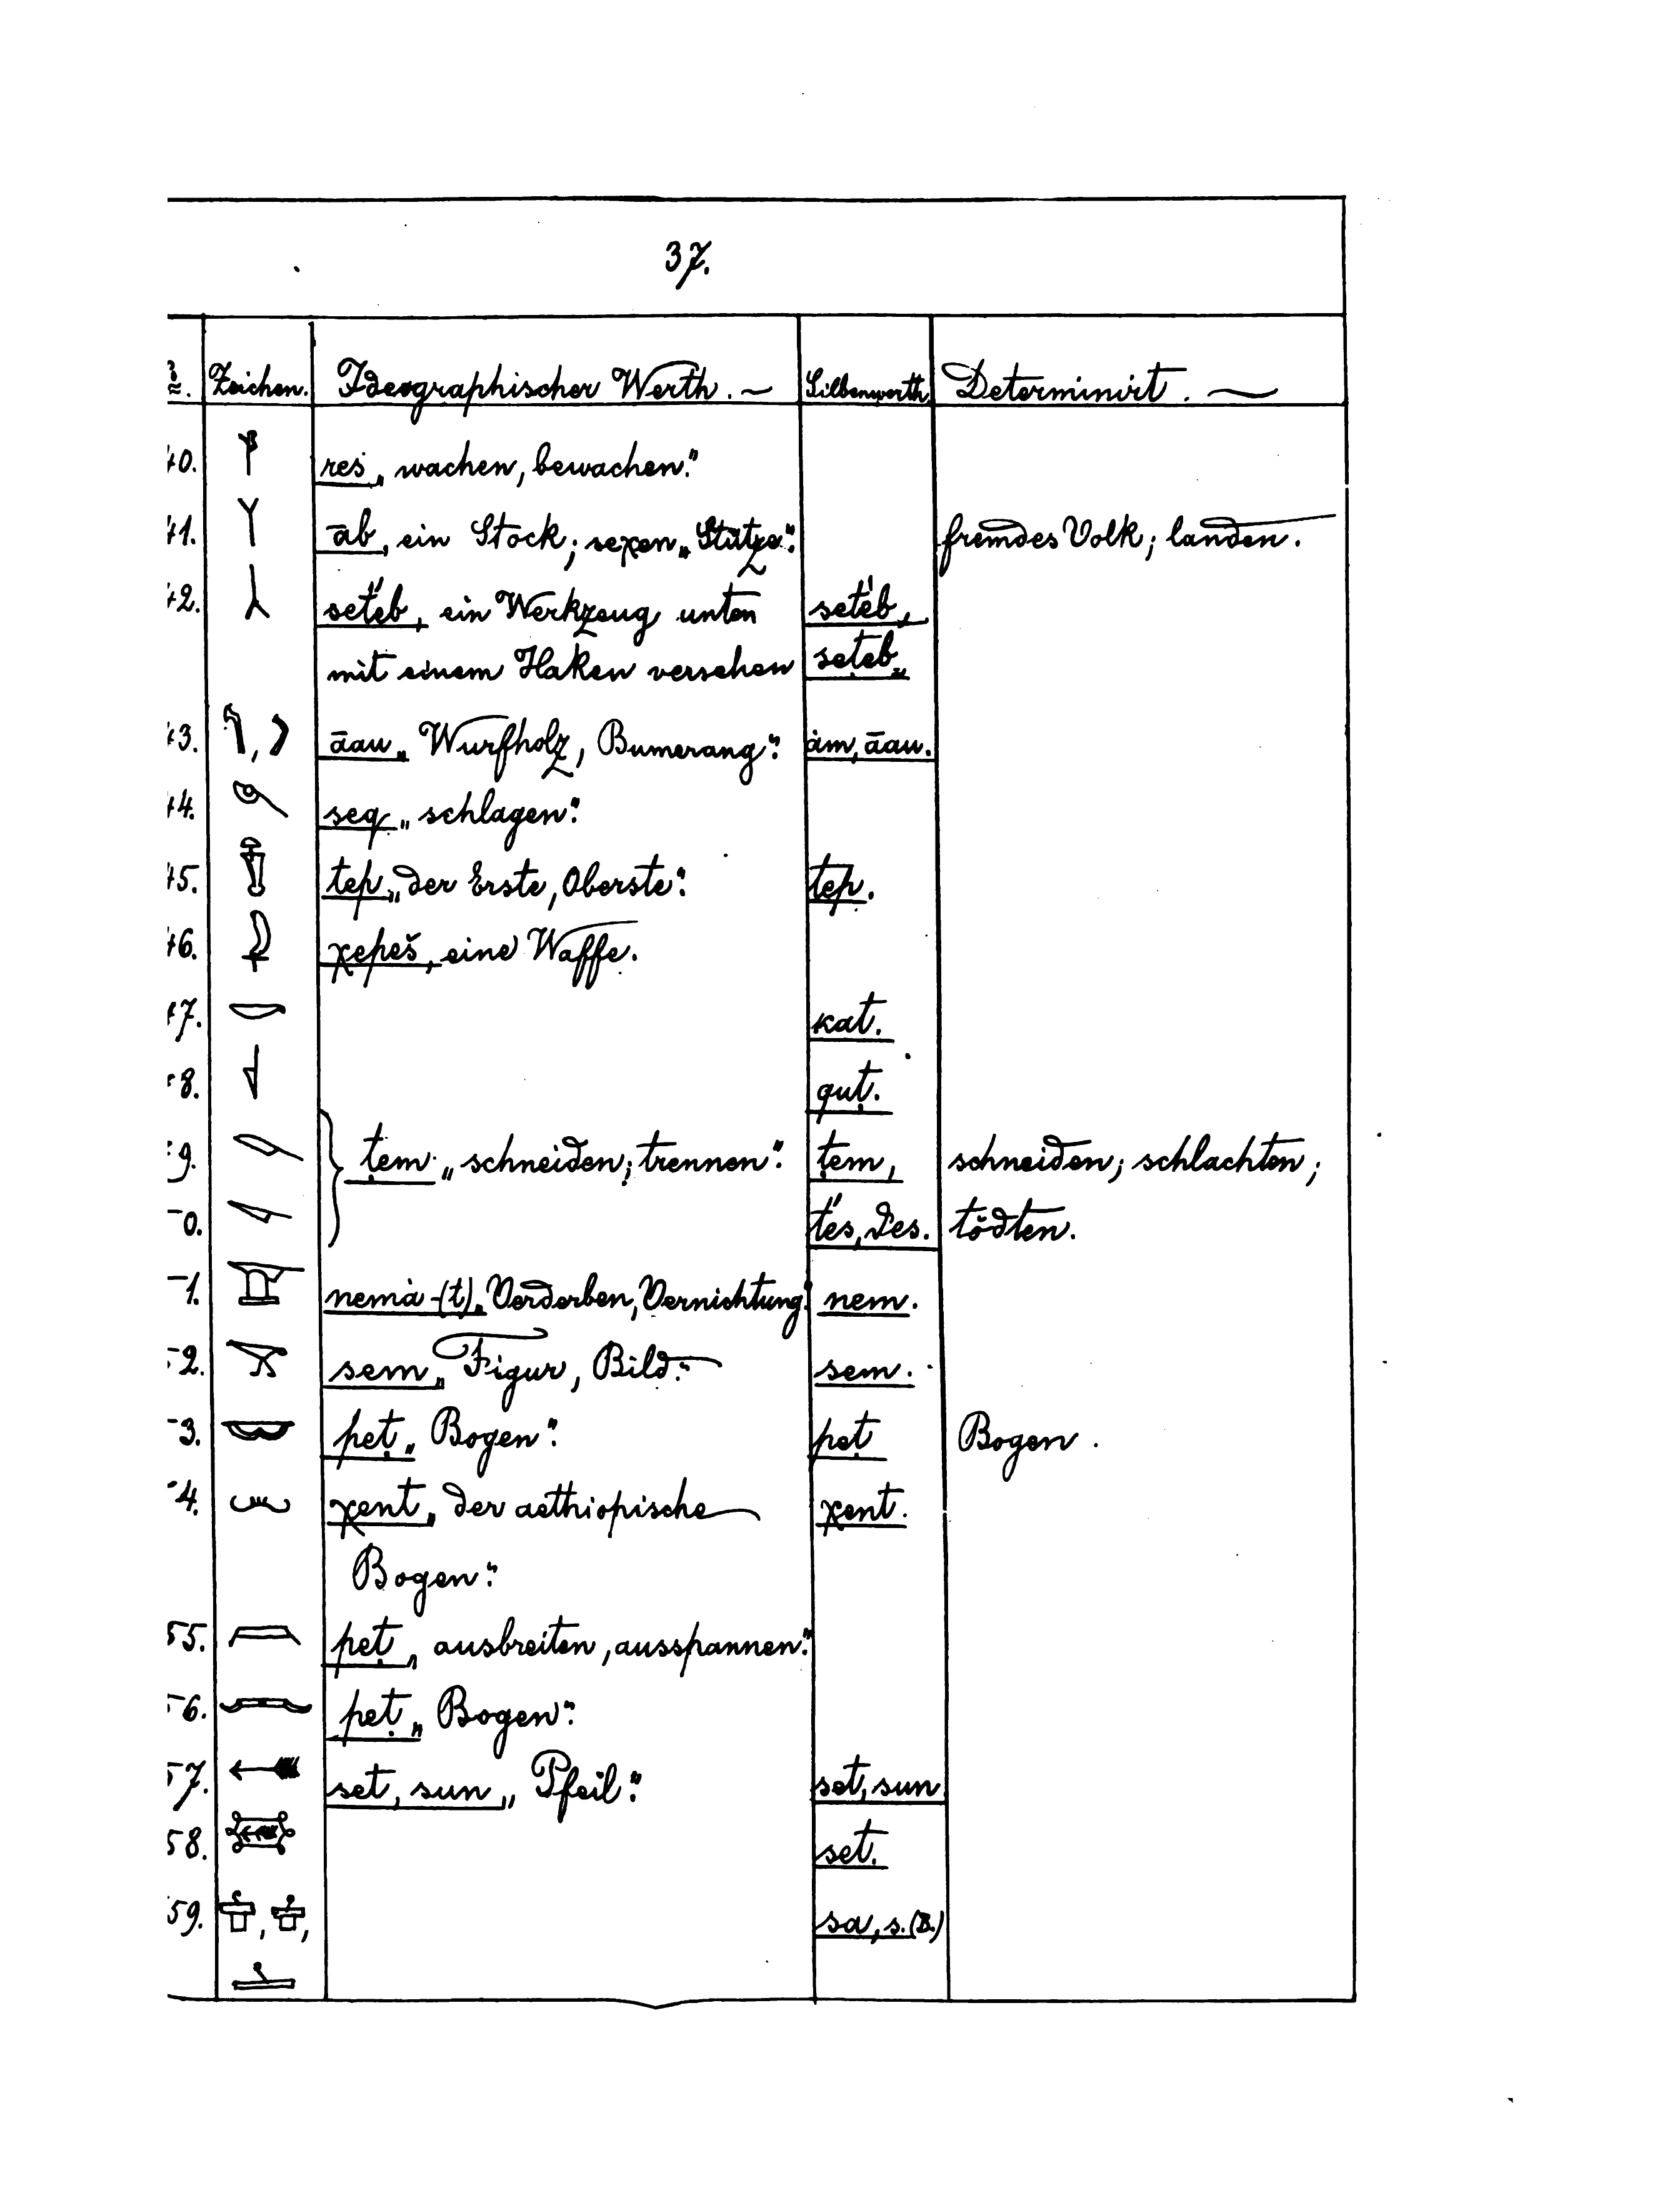 37.
Zeichen. Ideographischer Werth. — Silbenwerth. Determinirt. —
40. res „wachen, bewachen.“
41. āb, ein Stock; seχen „Stütze“. fremdes Volk; landen.
42. set́eb, ein Werkzeug unten set́eb,
mit einem Haken versehen seṭeb„
43. , āau „Wurfholz, Bumerang“. ȧm, āau.
44. seq „schlagen“.
45. tep „der Erste, Oberste“. tep.
46. χepeš, eine Waffe.
47. kat.
48. quṭ.
49. ṭem „schneiden; trennen“. ṭem, schneiden; schlachten;
50. t́es, tödten.
51. nemȧ-(t) „Verderben, Vernichtung.“ nem.
52. sem „Figur, Bild“. sem.
53. peṭ „Bogen“. peṭ Bogen.
54. χent „der aethiopische χent.
Bogen“.
55. peṭ „ausbreiten, ausspannen“.
56. peṭ „Bogen“.
57. set, sun „Pfeil“. set, sun
58. set.
59. , , sa, s. (B.)